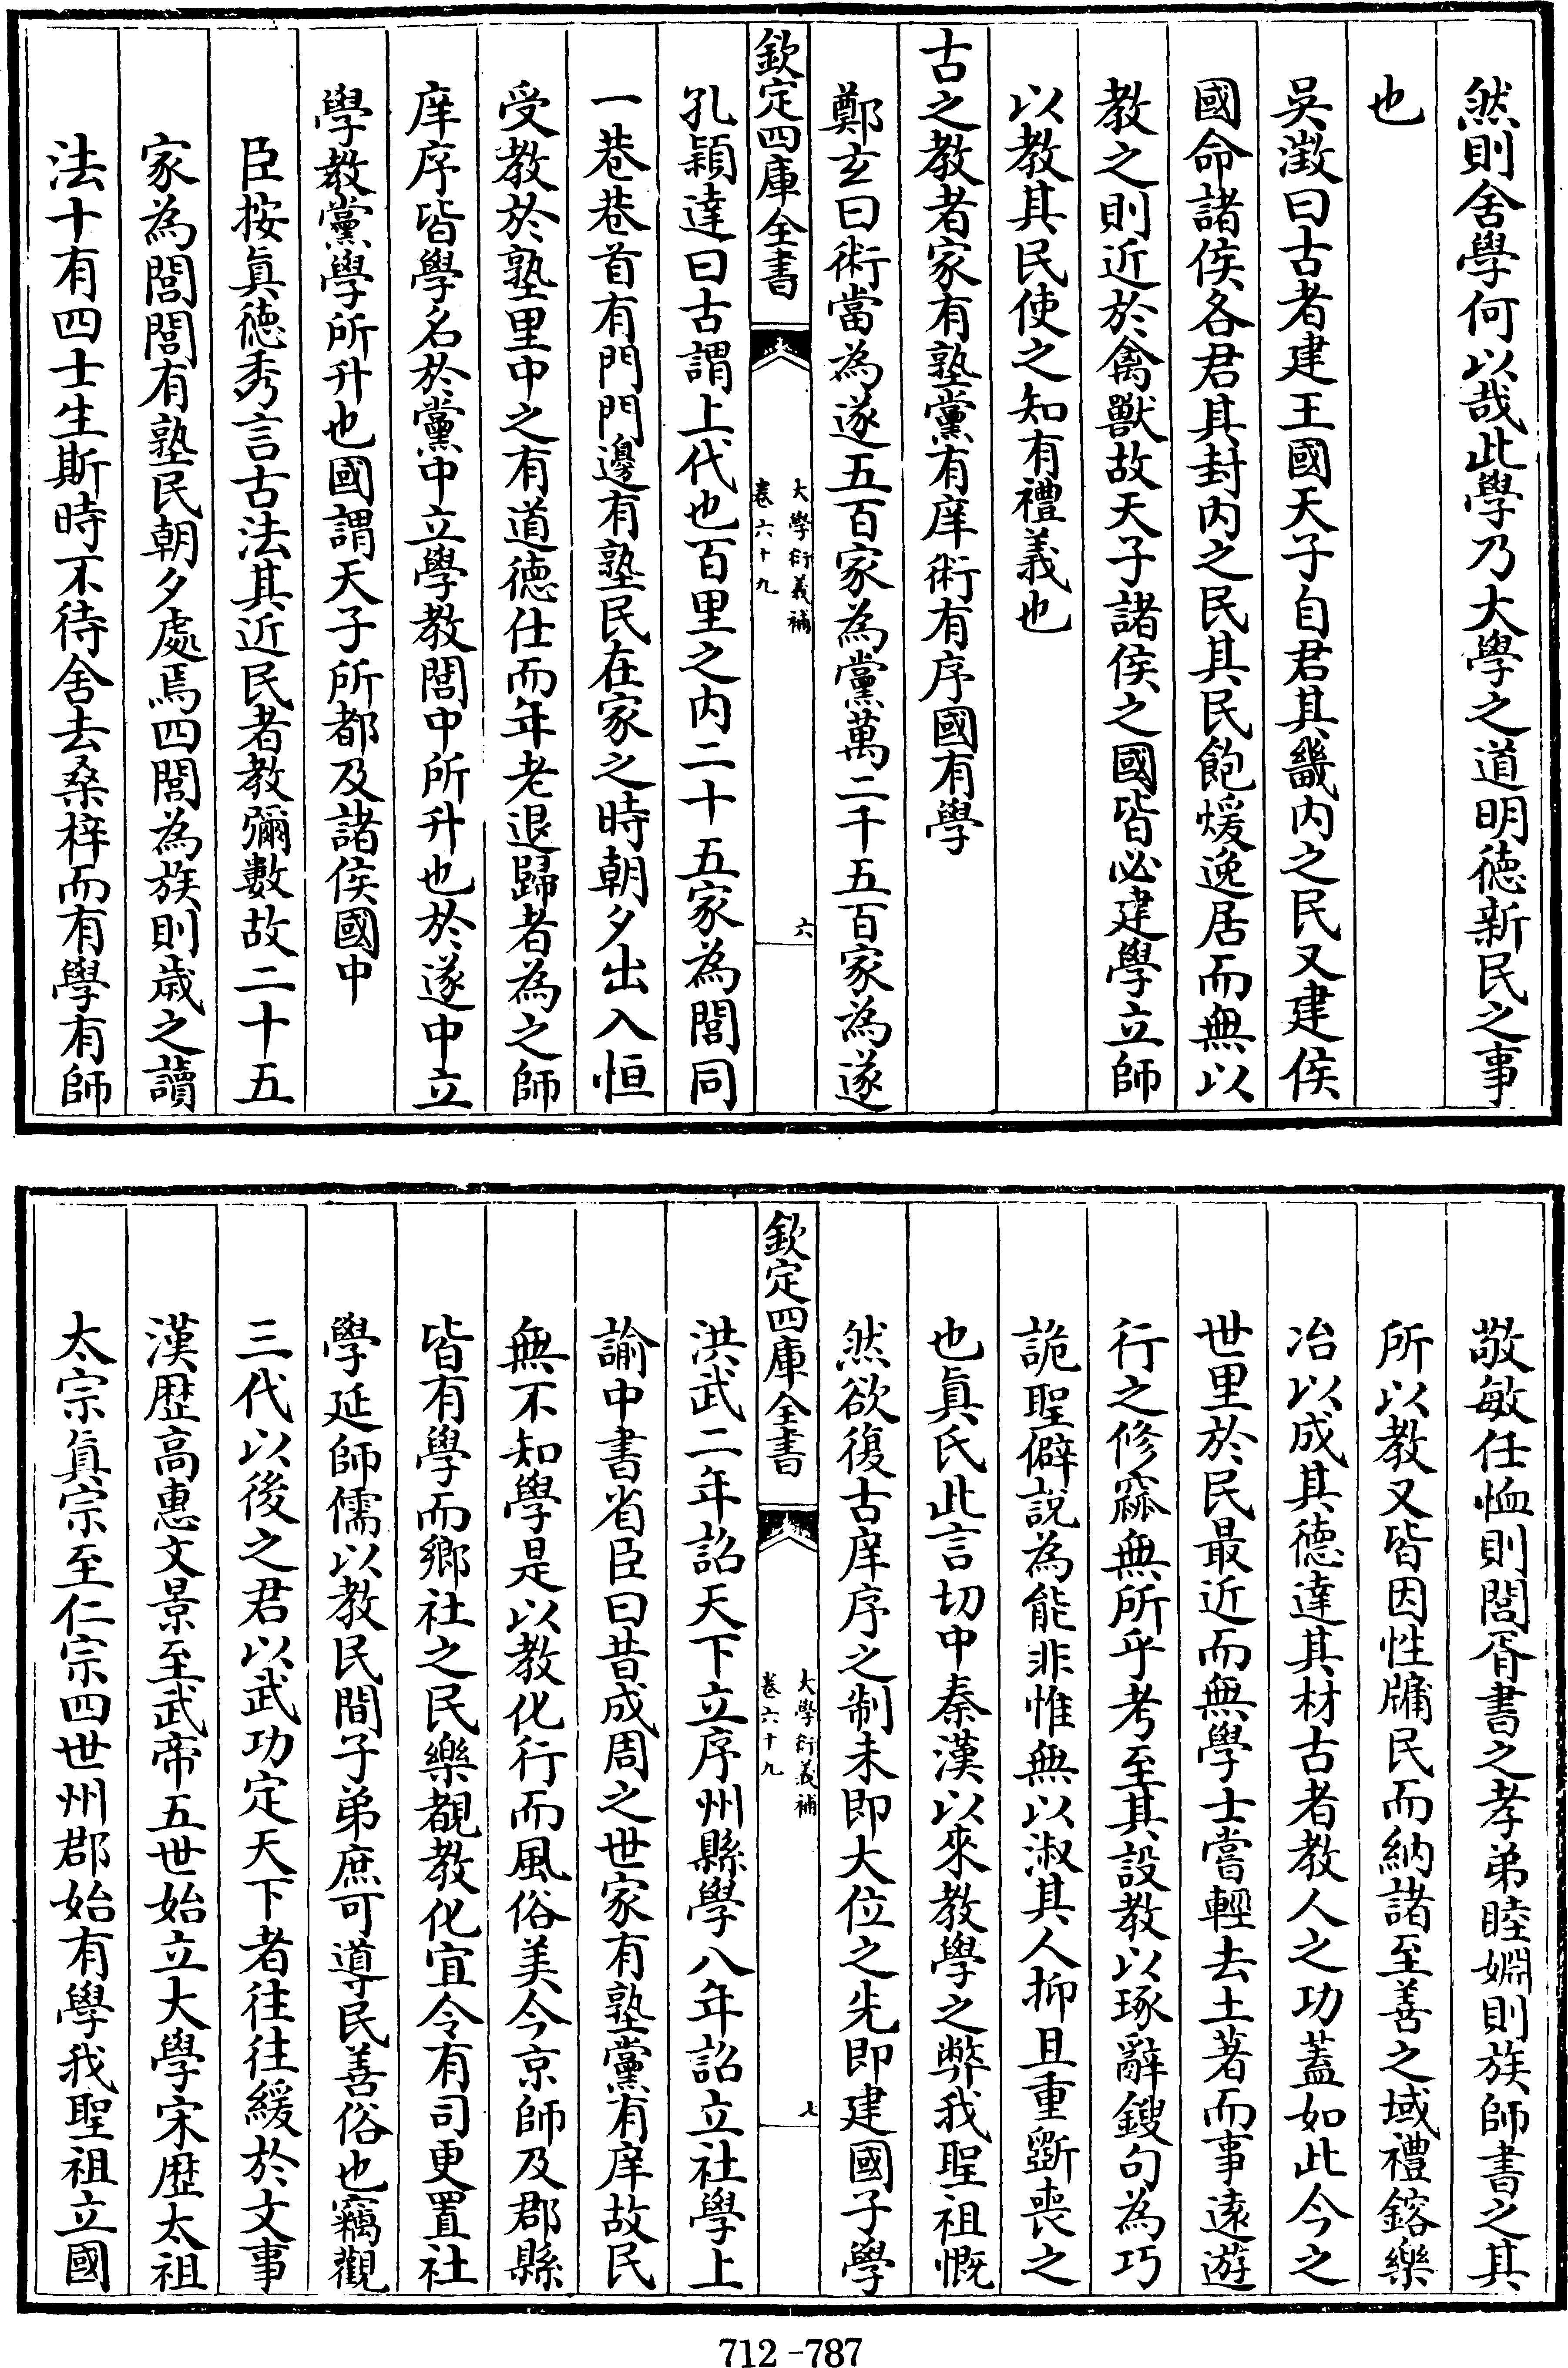 然則舍學何以哉此學乃大學之道明徳新民之事
也
吳澂曰古者建王國天子自君其畿内之民又建侯
國命諸侯各君其封内之民其民飽煖逸居而無以
教之則近於禽獸故天子諸侯之國皆必建學立師
以教其民使之知有禮義也
古之教者家有塾黨有庠術有序國有學
鄭玄曰術當為遂五百家為黨萬二千五百家為遂
欽定四庫全書
大學衍義補
卷六十九
六
孔穎達曰古謂上代也百里之内二十五家為閭同
一巷巷首有門門邊有塾民在家之時朝夕出入恒
受教於塾里中之有道德仕而年老退歸者為之師
庠序皆學名於黨中立學教閭中所升也於遂中立
學教黨學所升也國謂天子所都及諸侯國中
臣按真徳秀言古法其近民者教彌數故二十五
家為閭閭有塾民朝夕處焉四閭為族則歳之讀
法十有四士生斯時不待舍去桑梓而有學有師
敬敏任恤則閭胥書之孝弟睦婣則族師書之其
所以教又皆因性牖民而納諸至善之域禮鎔樂
冶以成其德達其材古者教人之功蓋如此今之
世里於民最近而無學士嘗輕去土著而事遠遊
行之修窳無所乎考至其設教以琢辭鎪句為巧
詭聖僻説為能非惟無以淑其人抑且重斲喪之
也真氏此言切中秦漢以來教學之弊我聖祖慨
然欲復古庠序之制未即大位之先即建國子學
欽定四庫全書
大學衍義補
卷六十九
七
洪武二年詔天下立序州縣學八年詔立社學上
諭中書省臣曰昔成周之世家有塾黨有庠故民
無不知學是以教化行而風俗美今京師及郡縣
皆有學而鄉社之民樂覩教化宜令有司更置社
學延師儒以教民間子弟庶可導民善俗也竊觀
三代以後之君以武功定天下者往往緩於文事
漢歴高惠文景至武帝五世始立大學宋歴太祖
太宗真宗至仁宗四世州郡始有學我聖祖立國
712-787